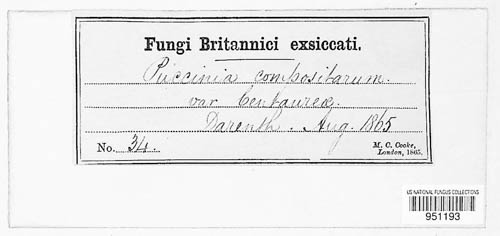 Fungi Britannici exsiccati.
Puccinia compositarum.
var Centaureæ.
Darenth. Aug. 1865
No. 34.
M. C. Cooke,
London, 1865.
US NATIONAL FUNGUS COLLECTIONS
951193